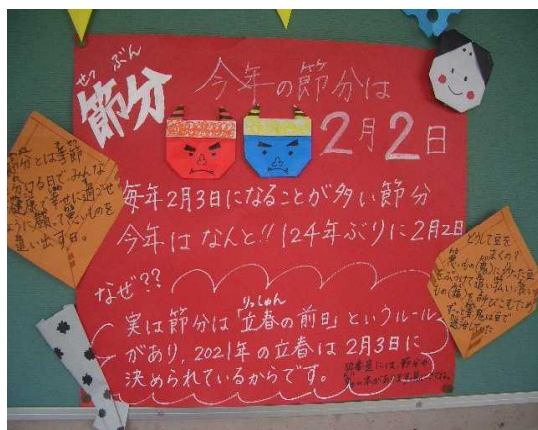 せつ ぶん
節分
今年の節分は
2月2日
毎年2月3日になることが多い節分
今年はなんと!! 124年ぶりに2月2日
なぜ??
りっしゅん
実は節分は「立春の前日」というルール
があり、2021年の立春は2月3日に
決められているからです。
節分とは季節
分ける日でみんな
健康で幸せに過ごせ
ように願って悪いものを
追い出す日。
どうして豆を
まくの?